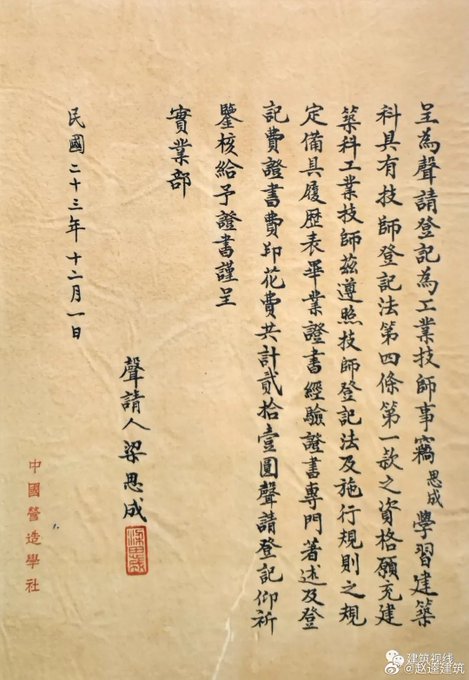 呈為聲請登記為工業技師事竊思成學習建築
科具有技師登記法第四條第一款之資格願充建
築科工業技師茲遵照技師登記法及施行規則之規
定備具履歷表畢業證書經驗證書專門著述及登
記費證書費印花費共計貳拾壹圓聲請登記仰祈
鑒核給予證書謹呈
實業部
聲請人梁思成
梁思成
民國二十三年十二月一日
中國營造學社
建筑视线
@赵逵建筑